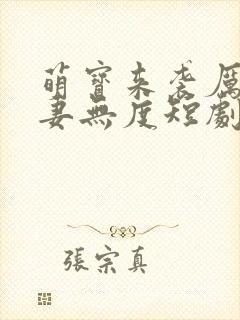 萌寶來袭厲
妻無度短劇
張宗真